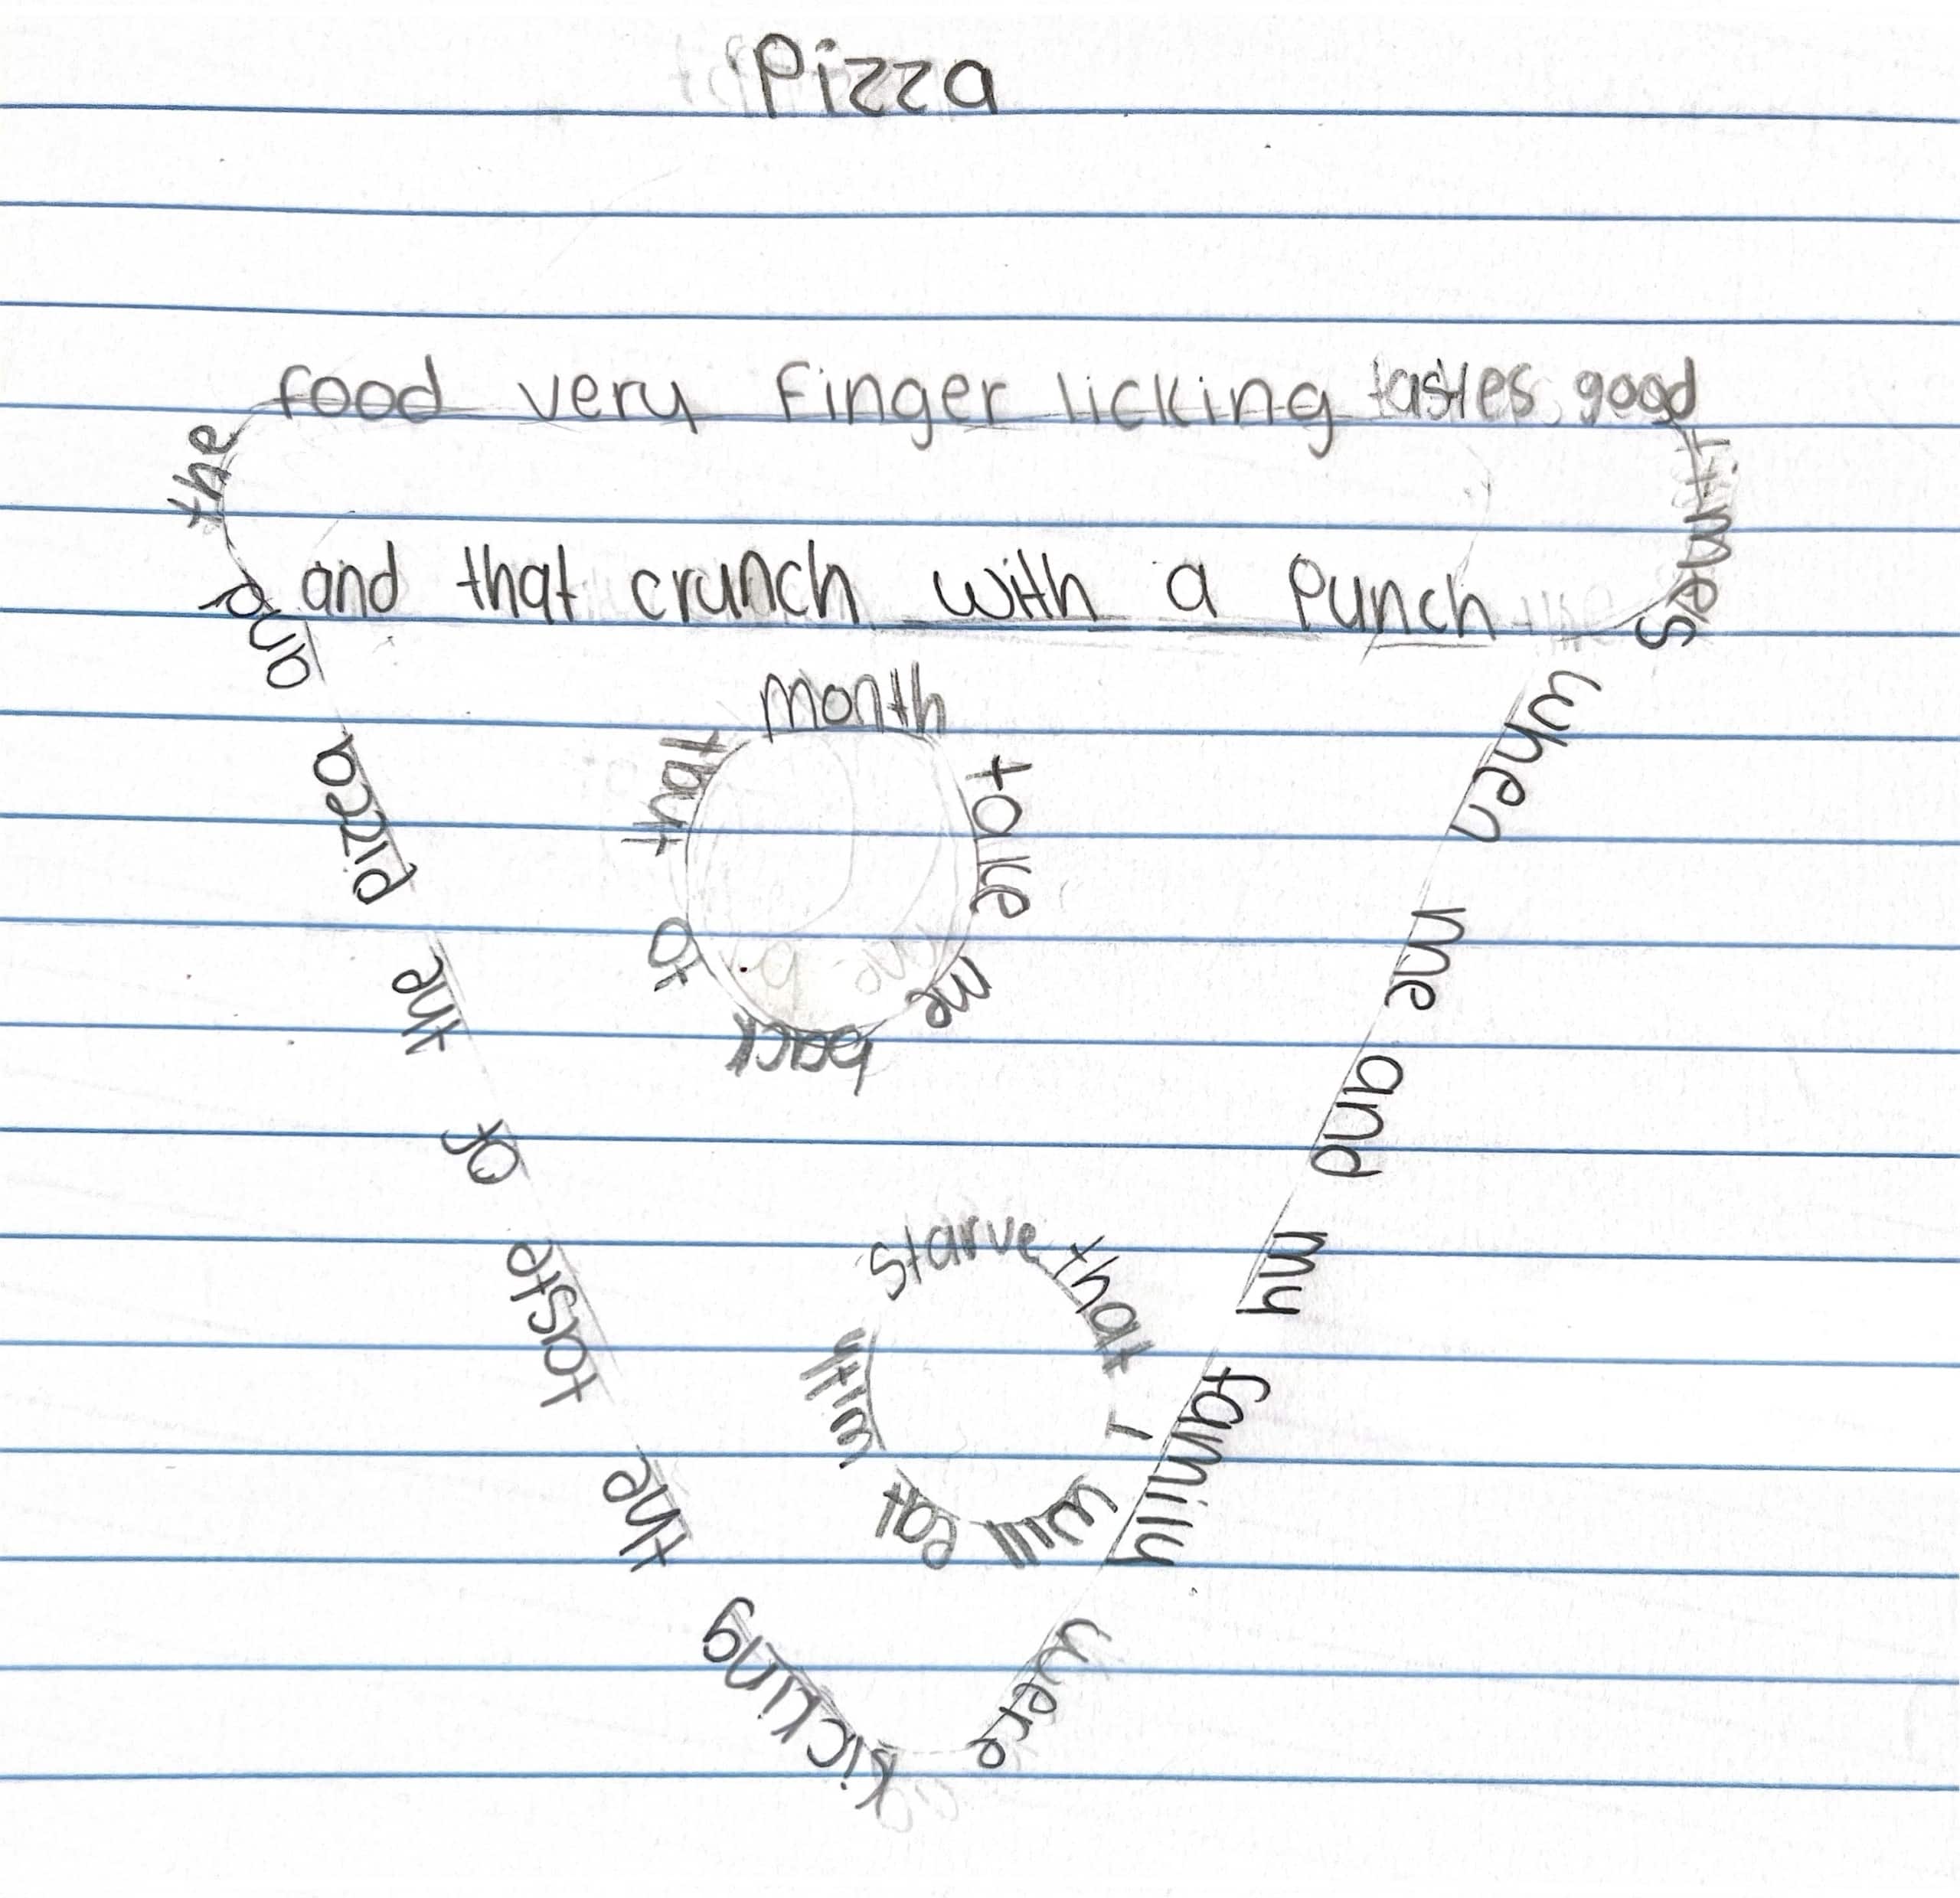 Pizza
the food very finger licking tastes good times
when me and my familly were
kicking the taste of the pizza and
and that crunch with a punch
month take me back to that
starve that I will eat with